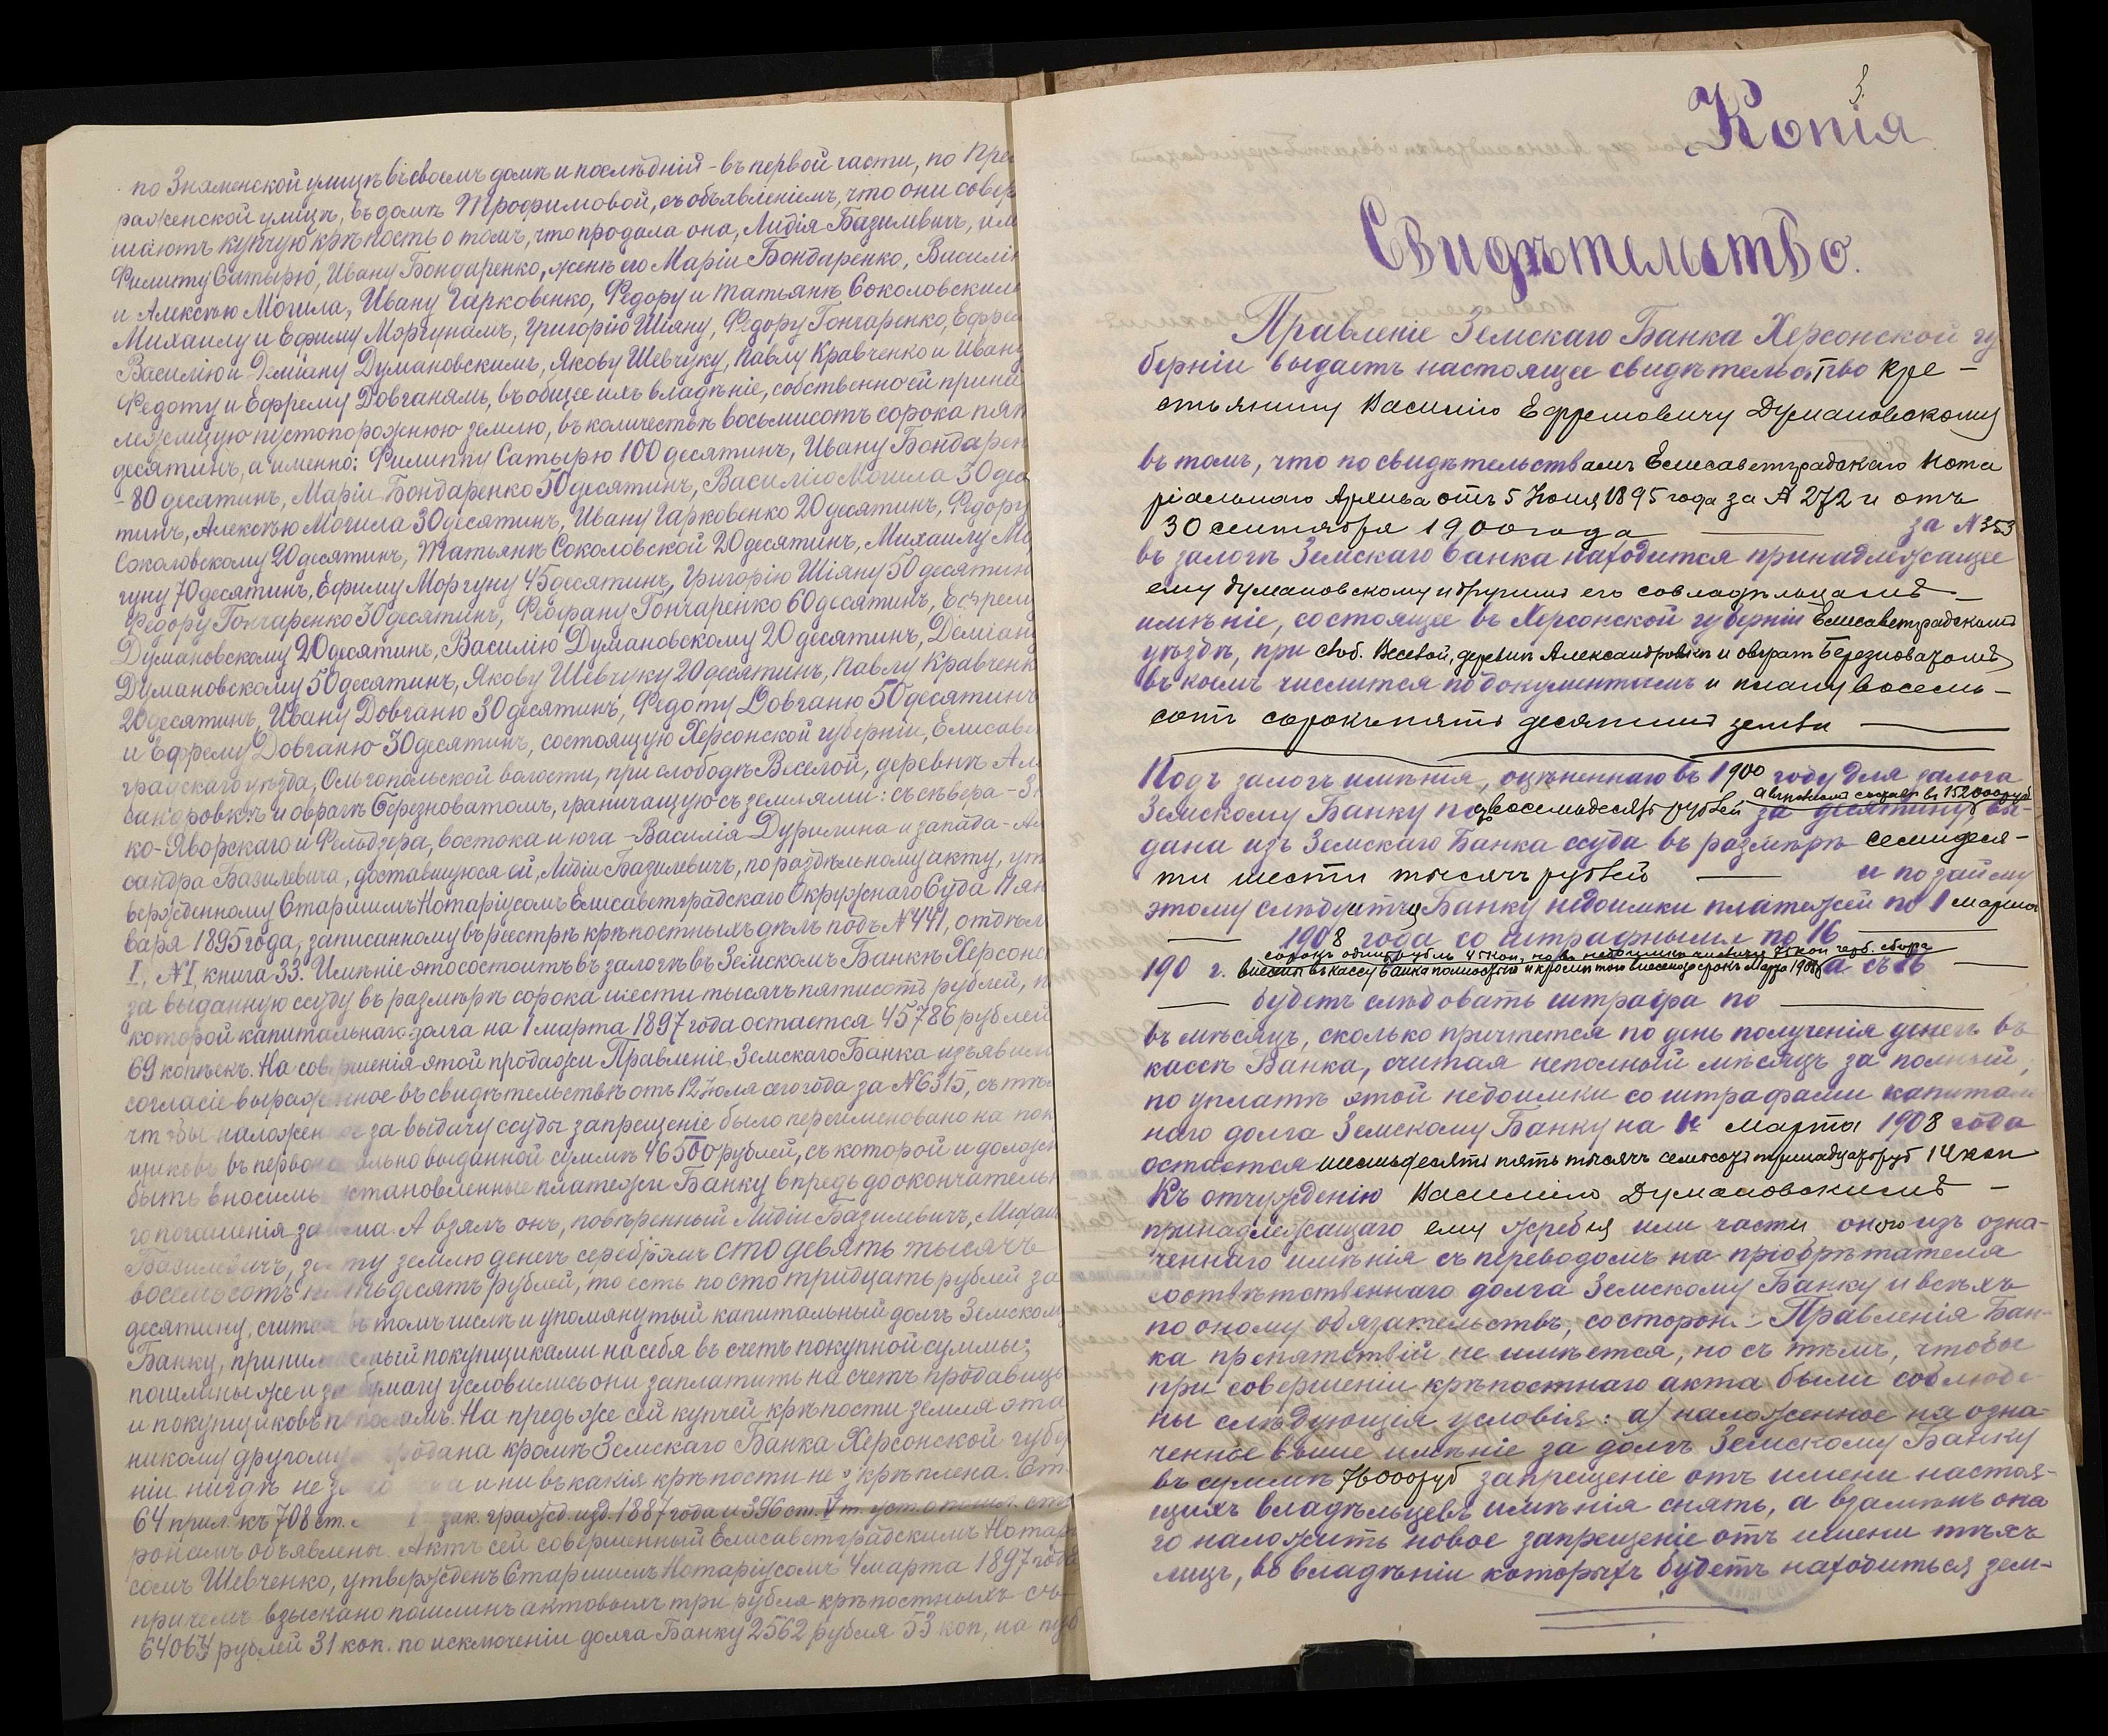 по Знаменской улицѣ въ своемъ домѣ и послѣдній - въ первой части, по Пре
раженской улицѣ, въ домѣ Трофимовой, съ объявленіемъ, что они совер
шаютъ купчую крѣпость о томъ, что продала она, Лидія Базилевичъ, им
Филиппу Сатырю, Ивану Бондаренко, женѣ его Маріи Бондаренко, Василі
и Алексѣю Могила, Ивану Гарковенко, Ѳедору и Татьянѣ Соколовским
Михаилу и Ефиму Моргунамъ, Григорію Шіяну, Ѳедору Гончаренко, Ефре
Василію и Деміану Думановскимъ, Якову Шевчуку, Павлу Кравченко и Ивану
Ѳедоту и Ефрему Довганямъ, въ общее ихъ владѣніе, собственно ей прина
лежащую пустопорожнюю землю, въ количествѣ восьмисотъ сорока пят
десятинъ, а именно: Филиппу Сатырю 100 десятинъ, Ивану Бондарен
- 80 десятинъ, Маріи Бондаренко 50 десятинъ, Василію Могила 30 дес
тинъ, Алексѣю Могила 30 десятинъ, Ивану Гарковенко 20 десятинъ, Ѳедору
Соколовскому 20 десятинъ, Татьянѣ Соколовской 20 десятинъ, Михаилу Мо
гуну 70 десятинъ, Ефиму Моргуну 45 десятинъ, Григорію Шіяну 50 десятин
Ѳедору Гончаренко 30 десятинъ, Ѳеофану Гончаренко 60 десятинъ, Ефрем
Думановскому 20 десятинъ, Василію Думановскому 20 десятинъ, Деміану
Думановскому 50 десятинъ, Якову Шевчуку 20 десятинъ, Павлу Кравченк
20 десятинъ, Ивану Довганю 30 десятинъ, Ѳедоту Довганю 50 десятинъ
и Ефрему Довганю 30 десятинъ, состоящую Херсонской губерніи, Елисаве
градскаго уѣзда, Ольгопольской волости, при слободѣ Веселой, деревнѣ Ал
сандровкѣ и оврагѣ Березноватомъ, граничащую съ землями: съ сѣвера - З
ко-Яворскаго и Фельдзера, востока и юга - Василія Дурилина и запада - Ал
сандра Базилевича, доставшуюся ей, Лидіи Базилевичъ, по раздѣльному акту, ут
вержденному Старшимъ Нотаріусомъ Елисаветградскаго Окружнаго Суда 11 ян
варя 1895 года, записанному въ реестрѣ крѣпостныхъ дѣлъ подъ № 441, отдѣл
I, № I, книга 33. Имѣніе это состоитъ въ залогѣ въ Земскомъ Банкѣ Херсонс
за выданную ссуду въ размѣрѣ сорока шести тысячъ пятисотъ рублей,
которой капитальнаго долга на 1 марта 1897 года остается 45786 рублей
69 копѣекъ. На совершенія этой продажи Правленіе Земскаго Банка изъявил
согласіе выраженное въ свидѣтельствѣ отъ 12 іюля сего года за № 6315, съ тѣм
чтобы наложенное за выдачу ссуды запрещеніе было переименовано на пок
щиковъ въ первоначально выданной суммѣ 46500 рублей, съ которой и должн
быть вносимы установленные платежи Банку впредь до окончательн
го погашенія займа. А взялъ онъ, повѣренный Лидіи Базилевичъ, Михаи
Базилевичъ, за ту землю денегъ серебромъ сто девять тысячъ
восемьсотъ пятьдесятъ рублей, то есть по сто тридцать рублей за
десятину, считая въ томъ числѣ и упомянутый капитальный долгъ Земском
Банку, принимаемый покупщиками на себя въ счетъ покупной суммы;
пошлины же и за бумагу условились они заплатить на счетъ продавицы
и покупщиковъ пополамъ. На предь же сей купчей крѣпости земля эта
никому другому продана кромѣ Земскаго Банка Херсонской губер
ніи нигдѣ не и ни въ какія крѣпости не укрѣплена. Ст.
64 прил. къ 708 ст. зак. гражд. изд. 1887 года и 396 ст. V т. уст. о пошл. сто
ронамъ объявлены. Актъ сей совершенный Елисаветградскимъ Нотар
сомъ Шевченко, утвержденъ Старшимъ Нотаріусомъ 4 марта 1897 года
причемъ взыскано пошлинъ актовыхъ три рубля крѣпостныхъ съ
64064 рублей 31 коп. по исключеніи долга Банку 2562 рубля 53 коп, на пуб
Копія
Свидѣтельство.
Правленіе Земскаго Банка Херсонской гу
берніи выдаетъ настоящее свидѣтельство кре-
стьянину Василію Ефремовичу Думановскому
въ томъ, что по свидѣтельствамъ Елисаветградскаго Нота
ріальнаго Архива отъ 5 Іюня 1895 года за № 272 и отъ
30 сентября 1900 года за № 353
въ залогѣ Земскаго банка находится принадлежащее
ему Думановскому и другимъ его совладѣльцамъ
имѣніе, состоящее въ Херсонской губерніи Елисаветградскомъ
уѣздѣ, при слоб. Веселой, деревнѣ Александровкѣ и оврагѣ Березноватомъ
въ коемъ числится по документамъ и плану восемь-
сотъ сорокъ пять десятинъ земли
Подъ залогъ имѣнія, оцѣненнаго въ 1900 году для залога
Земскому Банку въ 152000 руб вы-
дана изъ Земскаго Банка ссуда въ размѣрѣ семидеся-
ти шести тысячъ рублей и по займу
этому слѣдуетъ Банку недоимки платежей по 1 марта
1908 года со штрафными по 16
сорокъ одинъ рубль 4 коп, но въ недоимки 75 коп герб. сбора
190 г. внесены въ кассу Банка полностью и кромѣ того внесенъ срокъ Марта 1908 а съ 16
будетъ слѣдовать штрафа по
въ мѣсяцъ, сколько причтется по день полученія денегъ въ
кассѣ Банка, считая неполный мѣсяцъ за полный;
по уплатѣ этой недоимки со штрафами капиталь
наго долга Земскому Банку на 1е Марта 1908 года
остается шестьдесятъ пять тысячъ семьсотъ тринадцать руб 14 коп
Къ отчужденію Василіемъ Думановскимъ -
принадлежащаго ему жребія или части онаго изъ озна-
ченнаго имѣнія съ переводомъ на пріобрѣтателя
соотвѣтственнаго долга Земскому Банку и всѣхъ
по оному обязательствъ, со стороны Правленія Бан-
ка препятствій не имѣется, но съ тѣмъ, чтобы
при совершеніи крѣпостнаго акта были соблюде-
ны слѣдующія условія: а) наложенное на озна-
ченное выше имѣніе за долгъ Земскому Банку
въ суммѣ 76000 руб запрещеніе отъ имени настоя-
щихъ владѣльцевъ имѣнія снять, а взамѣнъ она
го наложить новое запрещеніе отъ имени тѣхъ
лицъ, во владѣніи которыхъ будетъ находиться зем-